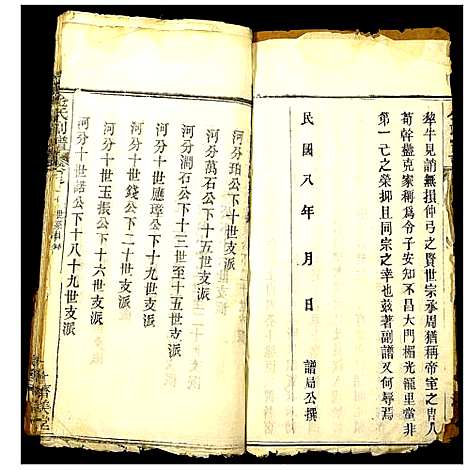 犂牛見誚無損仲弓之賢世宗承周猶稱帝室之冑人
苟幹盡克家稱為令子安知不昌大門楣光寵里黨非
第一己之榮抑且同宗之幸也玆著副譜又何辱焉
民國八年 月 日 譜局公撰
河分珀公下十世支派
河分萬石公下十五世支派
河分澗石公下十三世至十五世支派
河分十世應璋公下十九世支派
河分十世錢公下十二世支派
河分十世玉振公下十六世支派
河分十世諾公下十八十九世支派